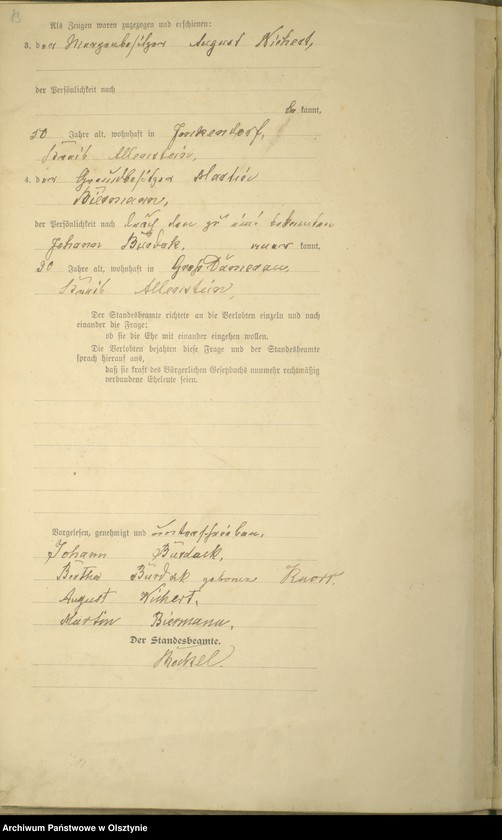 Als Zeugen waren zugezogen und erschienen:
3. der Morgenbesitzer August Wichert,
der Persönlichkeit nach
be kannt,
50 Jahre alt, wohnhaft in Jonkendorf,
Kreis Allenstein,
4. der Grundbesitzer Martin
Biermann,
der Persönlichkeit nach durch den zu eins bekannten
Johann Burdak, aner kannt,
30 Jahre alt, wohnhaft in Groß Damerau,
Kreis Allenstein,
Der Standesbeamte richtete an die Verlobten einzeln und nach
einander die Frage:
ob sie die Ehe mit einander eingehen wollen.
Die Verlobten bejahten diese Frage und der Standesbeamte
sprach hierauf aus,
daß sie kraft des Bürgerlichen Gesetzbuchs nunmehr rechtmäßig
verbundene Eheleute seien.
Vorgelesen, genehmigt und unterschrieben.
Johann Burdack,
Bertha Burdak geborene Knorr.
August Wichert.
Martin Biermann.
Der Standesbeamte.
Archiwum Państwowe w Olsztynie